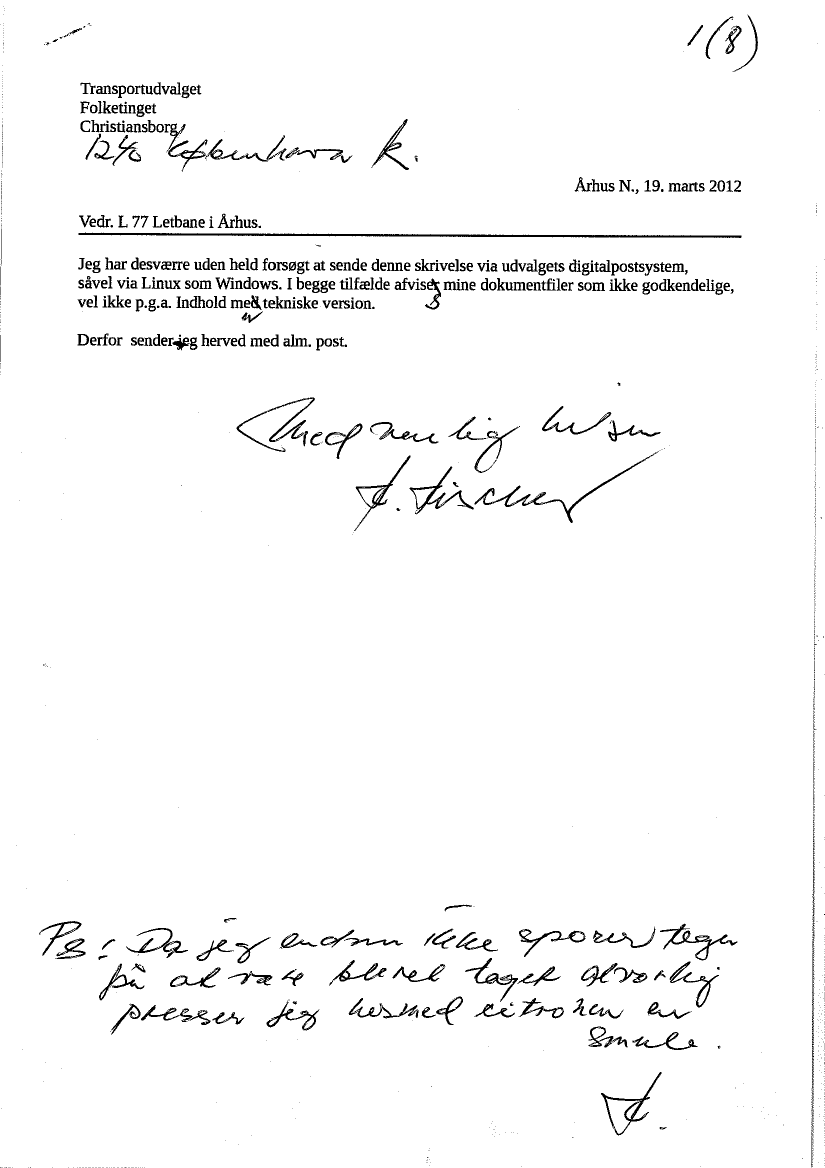 1(8)
Transportudvalget
Folketinget
Christiansborg
1240 København K.
Århus N., 19. marts 2012
Vedr. L 77 Letbane i Århus.
Jeg har desværre uden held forsøgt at sende denne skrivelse via udvalgets digitalpostsystem,
såvel via Linux som Windows. I begge tilfælde afvises mine dokumentfiler som ikke godkendelige,
vel ikke p.g.a. Indhold men tekniske version.
Derfor sender jeg herved med alm. post.
Med venlig hilsen
F. Fischer
Ps: Da jeg endnu ikke sporer tegn
på at være blevet taget alvorlig
presser jeg hermed citronen en
smule.
F.